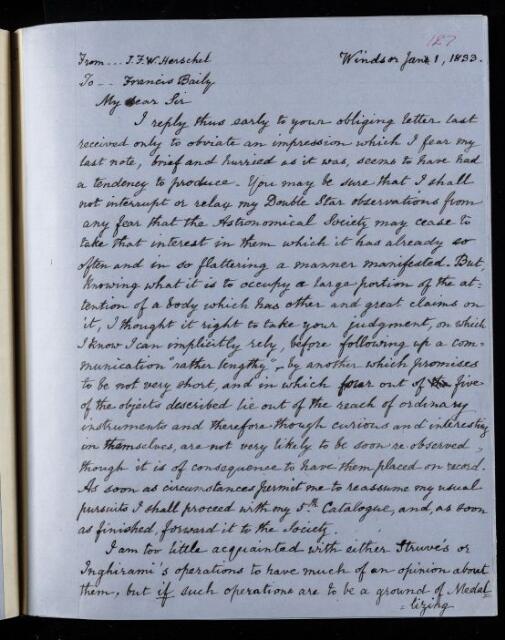 127
From -- J.F.W. Herschel Windsor Jany 1, 1833.
To -- Francis Baily
My dear Sir
I reply thus early to your obliging letter last
received only to obviate an impression which I fear my
last note, brief and hurried as it was, seems to have had
a tendency to produce. You may be sure that I shall
not interrupt or relax my Double Star observations from
any fear that the Astronomical Society may cease to
take that interest in them which it has already so
often and in so flattering a manner manifested. But,
knowing what it is to occupy a large portion of the at-
tention of a body which has other and great claims on
it, I thought it right to take your judgment, on which
I know I can implicitly rely, before following up a com-
munication "rather lengthy", by another which promises
to be not very short, and in which four out of the five
of the objects described lie out of the reach of ordinary
instruments and therefore though curious and interesting
in themselves, are not very likely to be soon re observed,
though it is of consequence to have them placed on record.
As soon as circumstances permit me to reassume my usual
pursuits I shall proceed with my 5th Catalogue, and, as soon
as finished, forward it to the Society.
I am too little acquainted with either Struve's or
Inghirami's operations to have much of an opinion about
them, but if such operations are to be a ground of Medal
= lizing